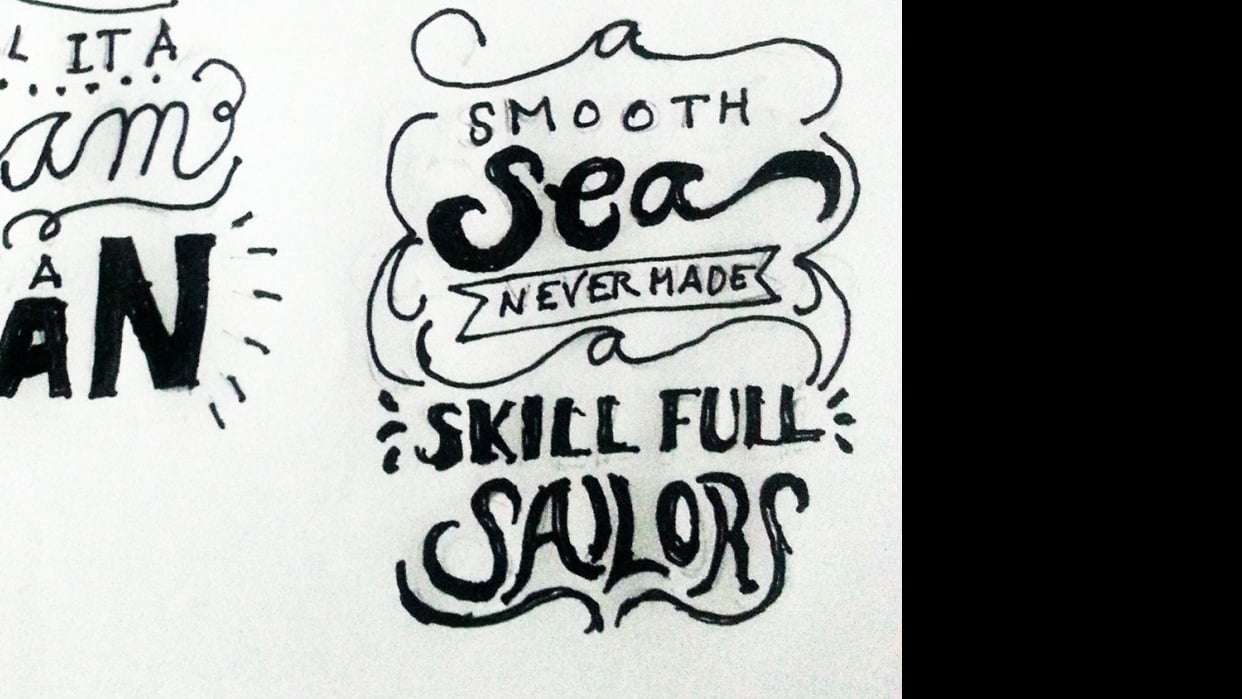 L IT A
am
A
AN
a
SMOOTH
sea
NEVER MADE
a
SKILL FULL
SAILORS